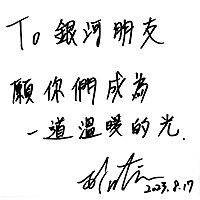 To 銀河朋友
願你們成為
一道溫暖的光.
2023.8.17